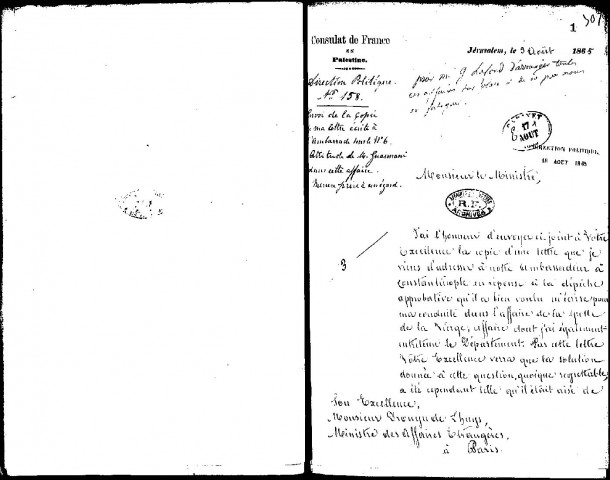 1
307
Consulat de France
EN
Palestine.
Direction Politique.
N° 158.
Envoi de la copie
de ma lettre écrite à
l'ambassade sous le N° 6.
Attitude de M. Guarmani
dans cette affaire.
Mesure prise à son égard.
Jérusalem, le 3 Août 1865
CABINET
17
AOUT
DIRECTION POLITIQUE
18 AOUT 1865
Monsieur le Ministre,
R.F.
ARCHIVES
3
J'ai l'honneur d'envoyer ci-joint à Votre
Excellence la copie d'une lettre que je
viens d'adresser à notre Ambassadeur à
Constantinople en réponse à la dépêche
approbative qu'il a bien voulu m'écrire pour
ma conduite dans l'affaire de la grotte
de la Vierge, affaire dont j'ai également
entretenu le Département. Par cette lettre
Votre Excellence verra que la solution
donnée à cette question, quoique regrettable,
a été cependant telle qu'il était aisé de
Son Excellence,
Monsieur Drouyn de Lhuys,
Ministre des Affaires Etrangères,
à Paris.